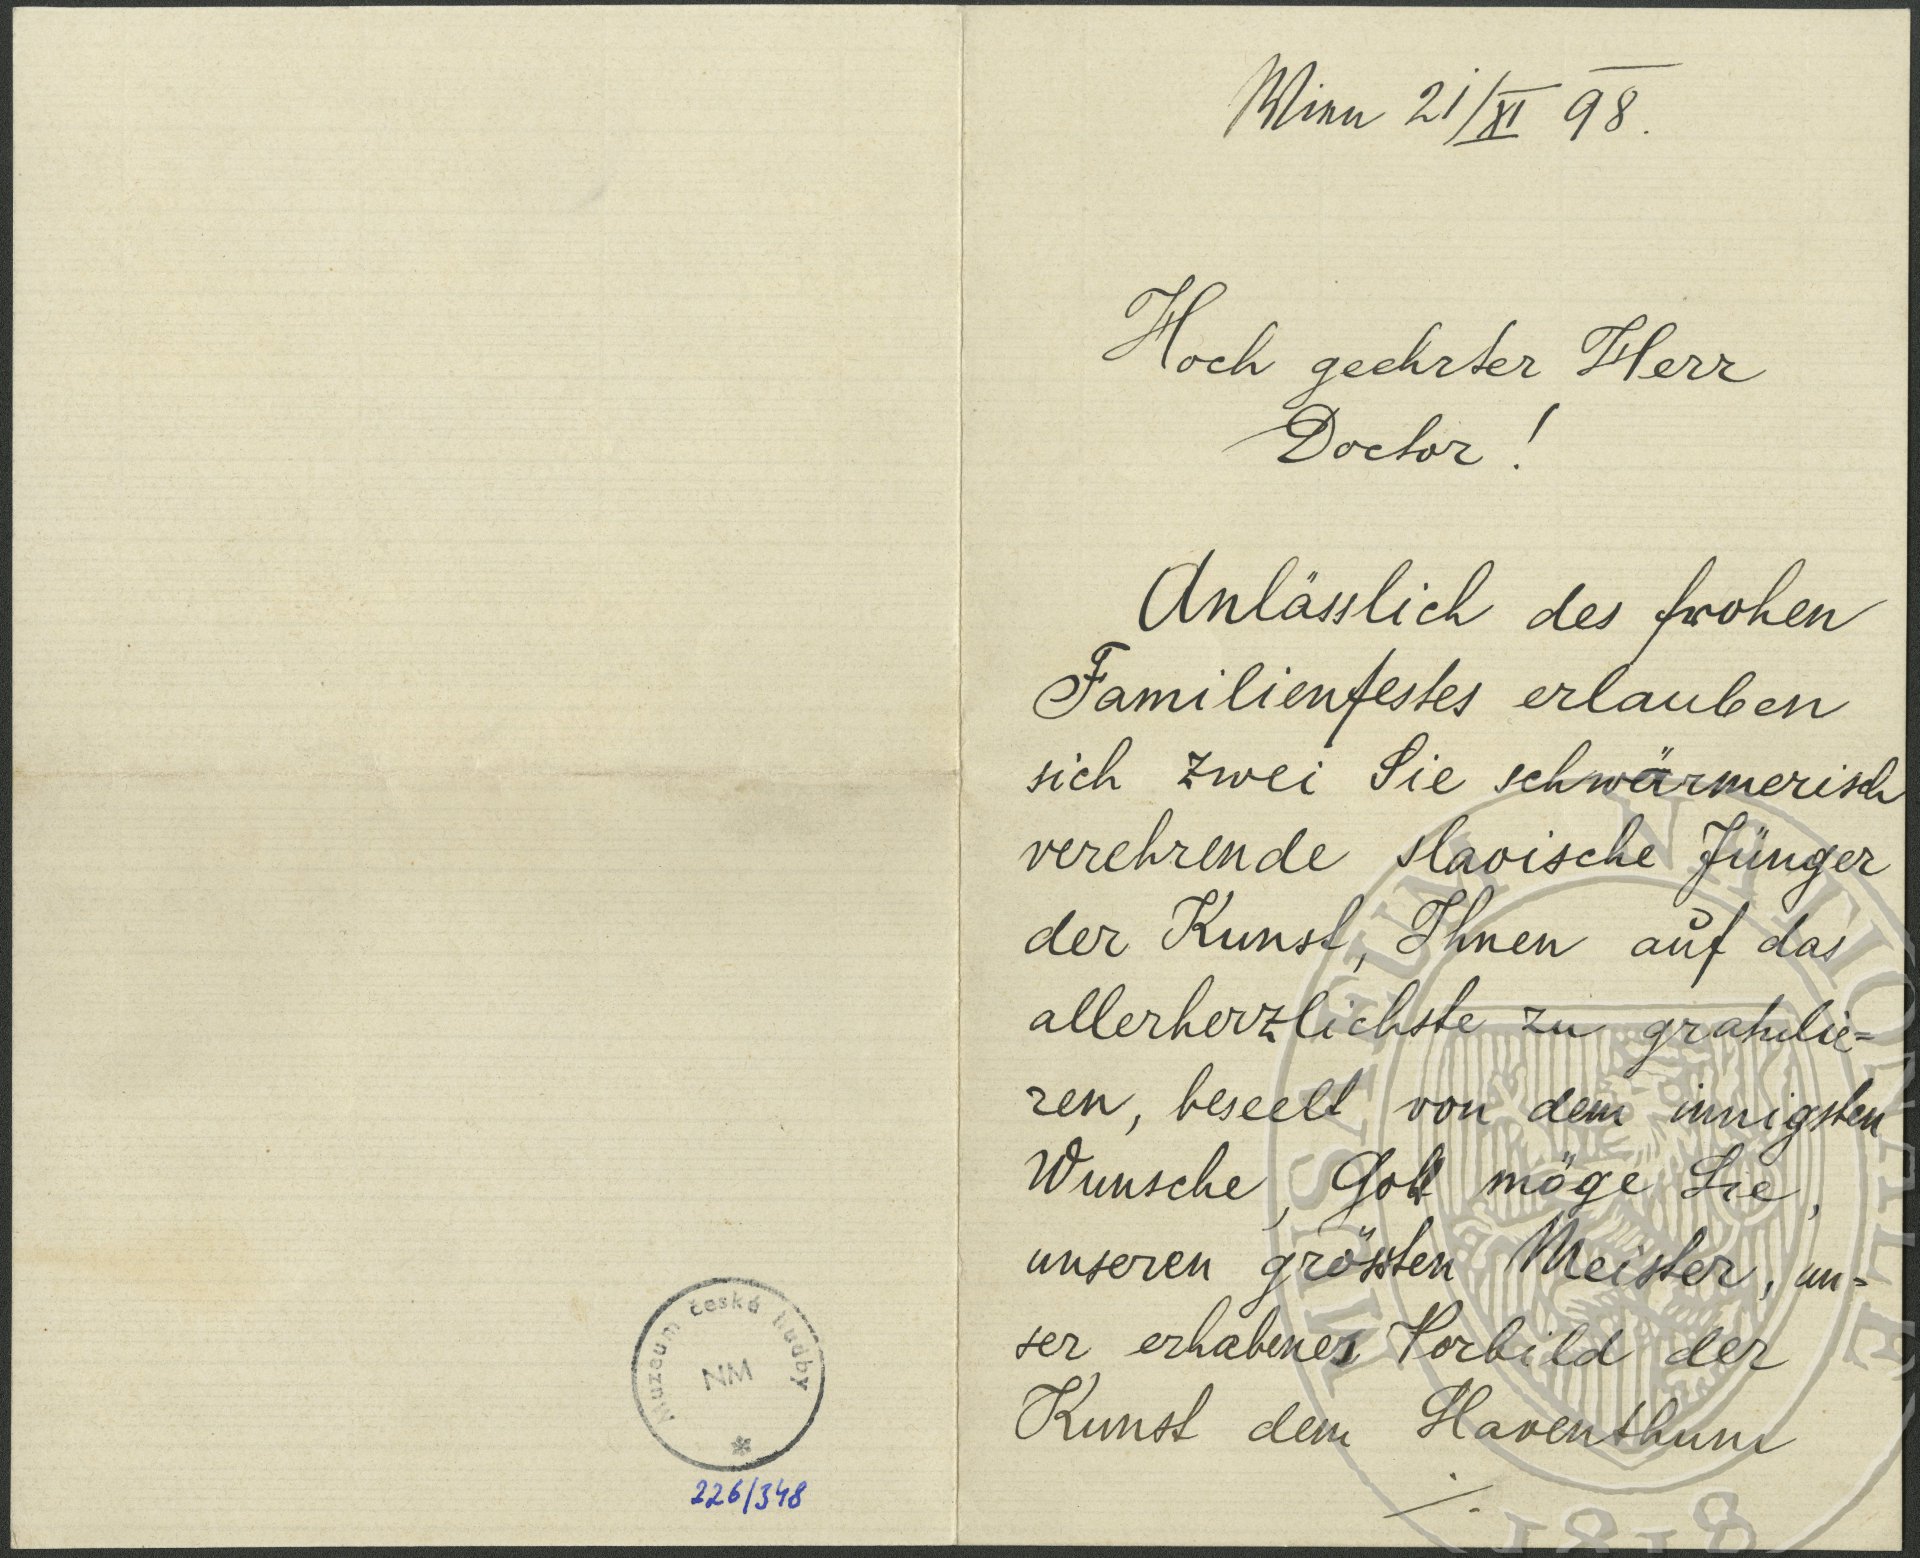 Muzeum české hudby
NM
226/348
Wien 21/XI 98.
Hoch geehrter Herr
Doctor!
Anlässlich des frohen
Familienfestes erlauben
sich zwei Sie schwärmerisch
verehrende slavische Jünger
der Kunst, Ihnen auf das
allerherzlichste zu gratulie=
ren, beseelt von dem innigsten
Wunsche, Gott möge Sie,
unseren grössten Meister, un=
ser erhabenes Vorbild der
Kunst dem Slaventhum
./.
MUSEUM NATIONALE
1818